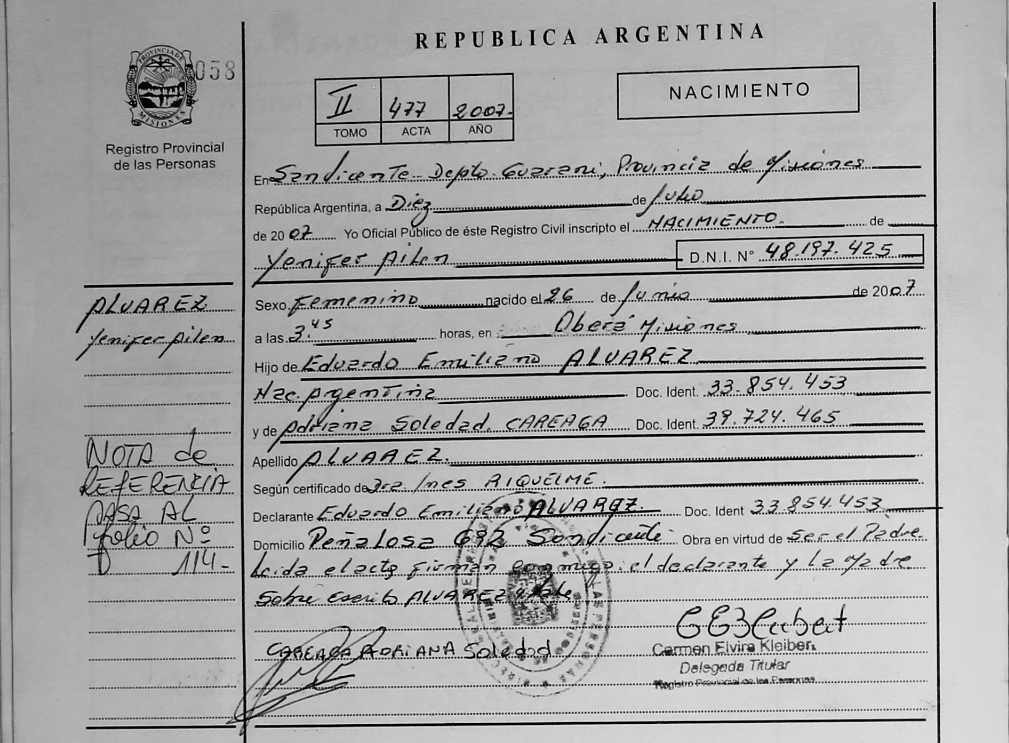 REPUBLICA ARGENTINA
PROVINCIA DE
MISIONES
058
Registro Provincial
de las Personas
II 477 2007-
TOMO ACTA AÑO
NACIMIENTO
En Sandicente - Depto. Guarani, Provincia de Misiones
República Argentina, a Diez de Julio
de 2007 Yo Oficial Público de éste Registro Civil inscripto el NACIMIENTO de
Yenifer Ailen D.N.I. N° 48.197.425
ALVAREZ
Yenifer Ailen
Sexo Femenino nacido el 26 de Junio de 2007
a las 3.45 horas, en Oberá Misiones
Hijo de Eduardo Emiliano ALVAREZ
Nac. Argentina Doc. Ident. 33.854.453
y de Adriana Soledad CAREAGA Doc. Ident. 39.724.465
Apellido ALVAREZ.
Según certificado de Dra. Ines RIQUELME.
Declarante Eduardo Emiliano ALVAREZ. Doc. Ident 33.854.453
Domicilio Peñalosa 692 Obra en virtud de Ser el Padre
Leida el acta firman conmigo el declarante y la Madre
Sobre escrito ALVAREZ vale
NOTA de
REFERENCIA
PASA AL
folio Nº
114-
CAREAGA ADRIANA Soledad
Carmen Elvira Kleibert
Delegada Titular
Registro Provincial de las Personas